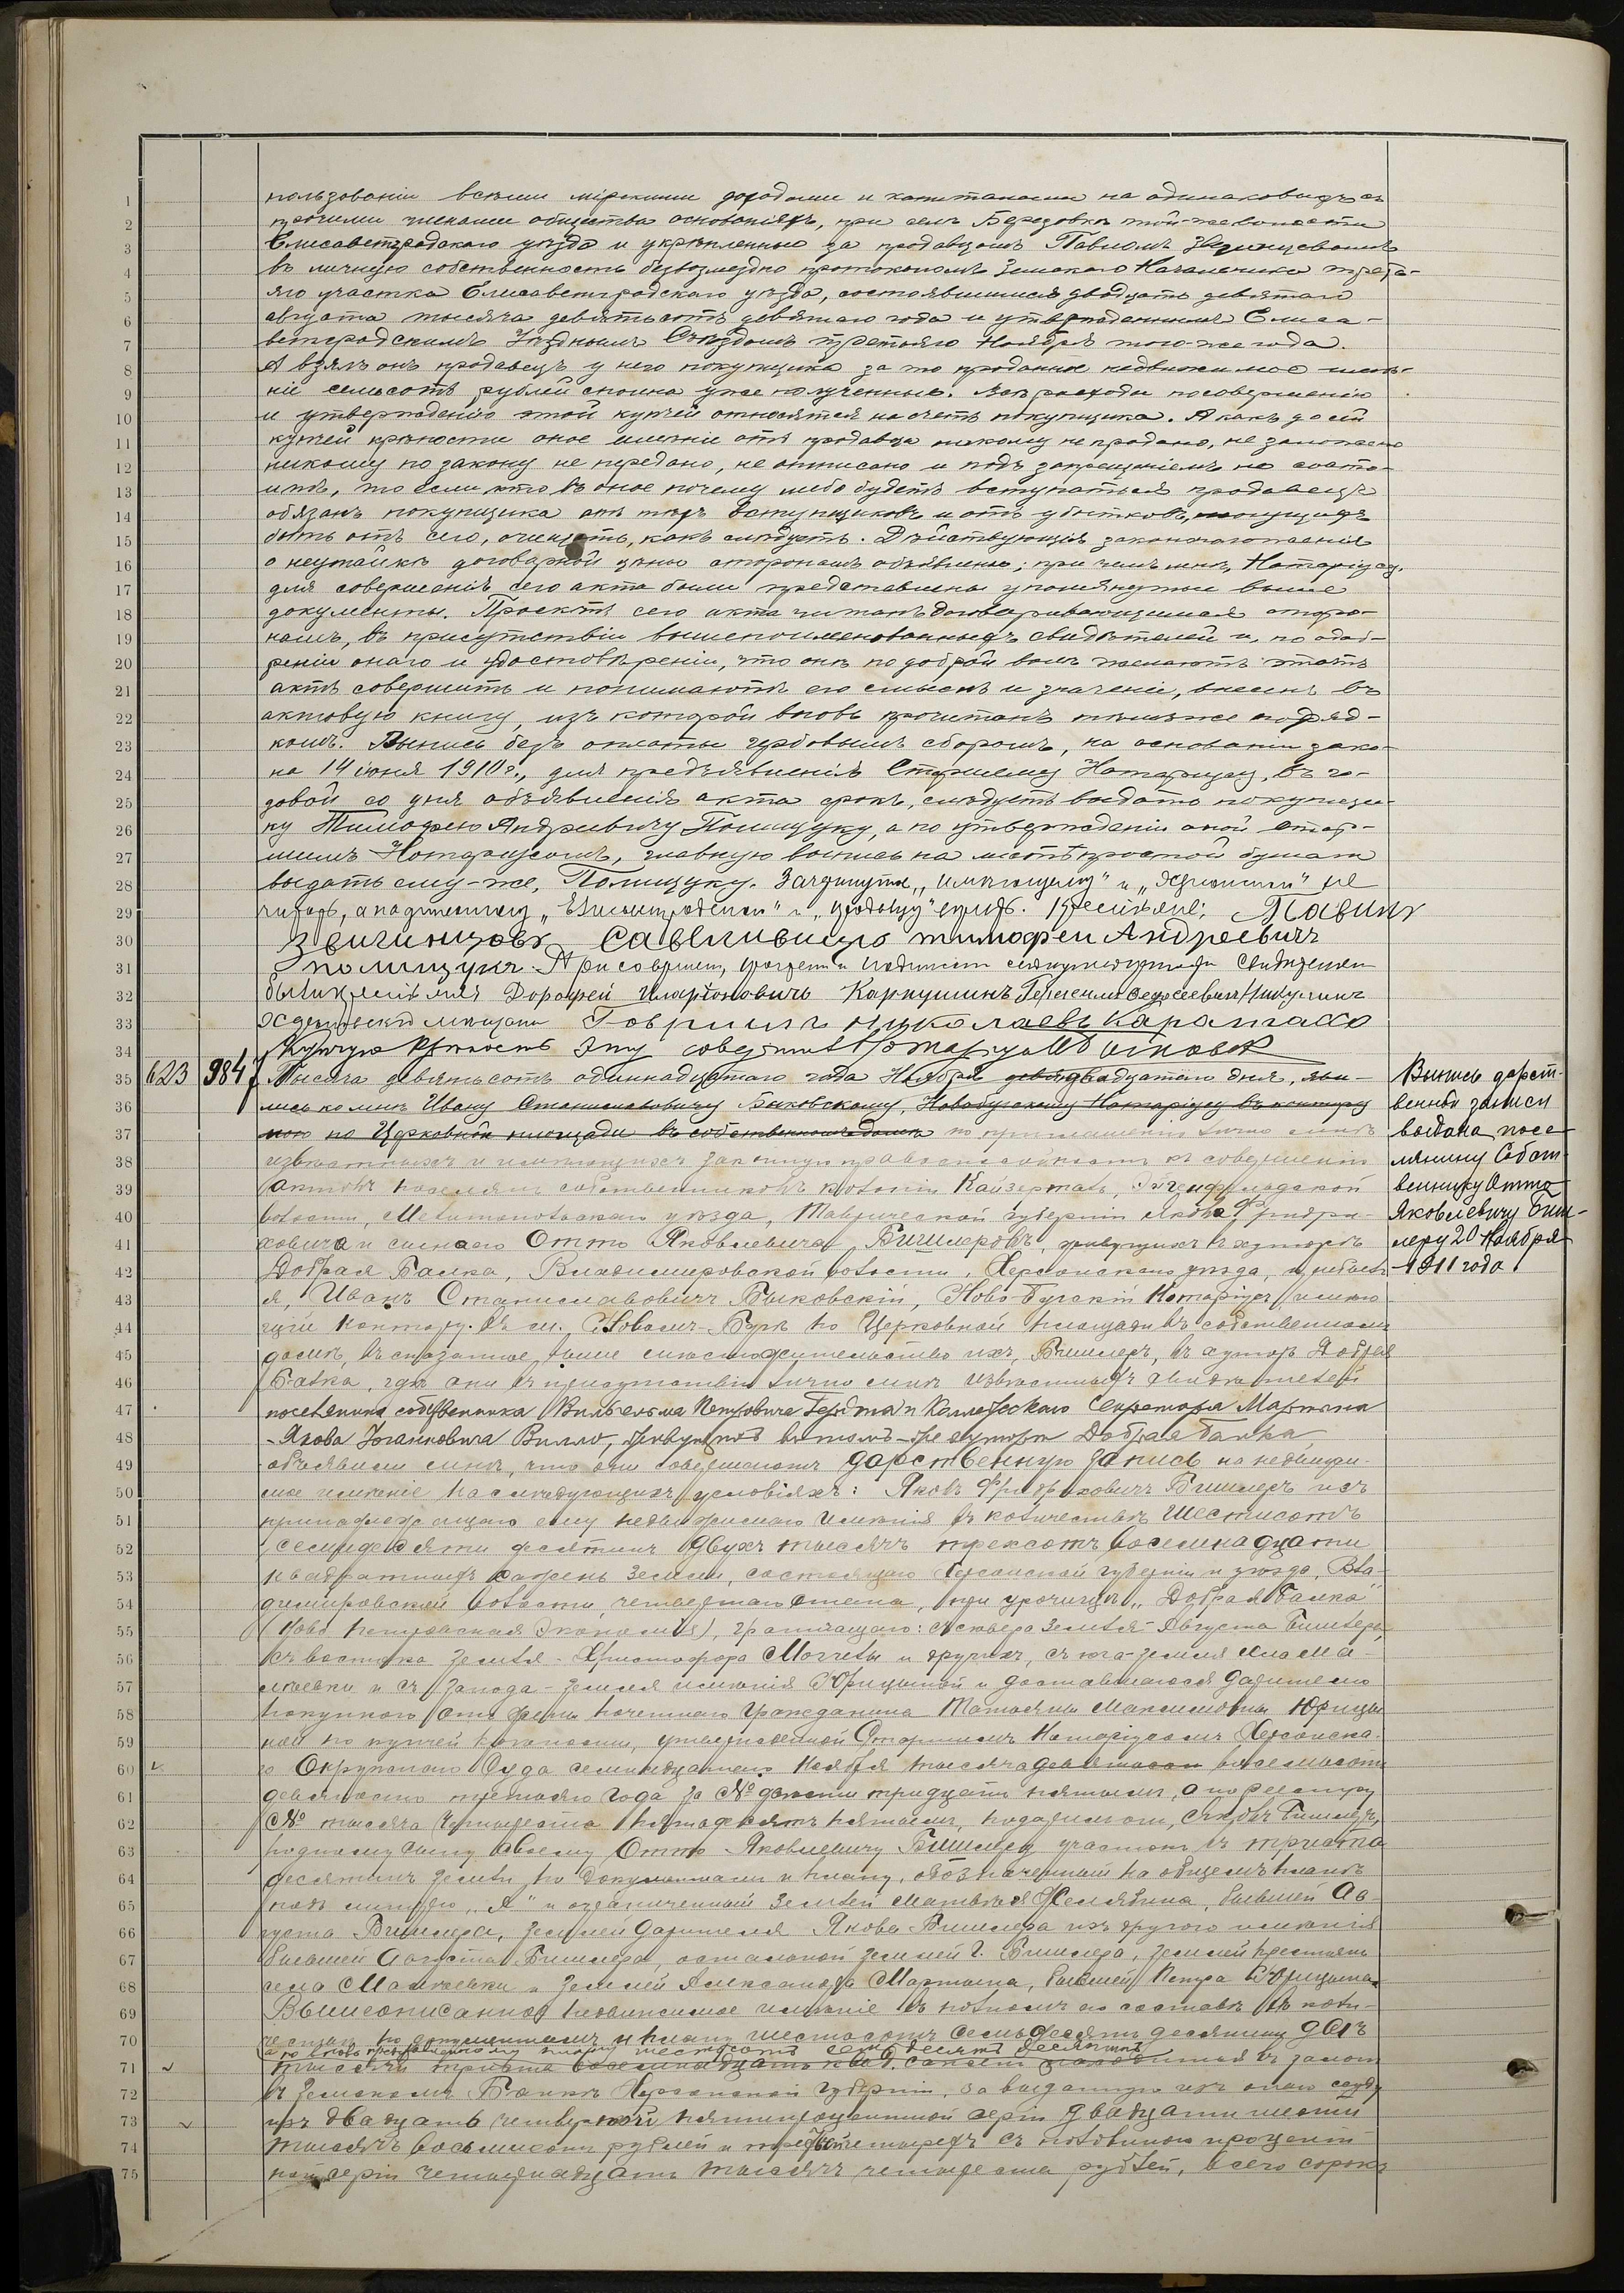 1 пользованіи всѣми мірскими доходами и капиталами на одинаковыхъ съ
2 прочими членами общества основаніяхъ, при селѣ Березовкѣ той-же волости
3 Елисаветградскаго уѣзда и укрѣпленные за продавцомъ Павломъ Звигинцовымъ
4 въ личную собственность безвозмездно протоколомъ Земскаго Начальника треть-
5 яго участка Елисаветградскаго уѣзда, состоявшимся двадцать девятаго
6 августа тысяча девятьсотъ девятаго года и утвержденнымъ Елиса-
7 ветградскимъ Уѣзднымъ Съѣздомъ третьяго Ноября того-же года.
8 А взялъ онъ продавецъ у него покупщика за то проданное недвижимое имѣ-
9 ніе семьсотъ рублей сполна уже полученные. Всѣ расходы по совершенію
10 и утвержденію этой купчей относятся на счетъ покупщика. А какъ до сей
11 купчей крѣпости оное имѣніе отъ продавца никому не продано, не заложено
12 никому по закону не передано, не отписано и подъ запрещеніемъ не состо-
13 итъ, то если кто въ оное почему либо будетъ вступаться продавецъ
14 обязанъ покупщика отъ тѣхъ вступщиковъ и отъ убытковъ, могущихъ
15 быть отъ сего, очищать, какъ слѣдуетъ. Дѣйствующія законоположенія
16 о неутайкѣ договорной цѣны сторонамъ объявлены; при чемъ мнѣ, Нотаріусу,
17 для совершенія сего акта были представлены упомянутые выше
18 документы. Проектъ сего акта читанъ договаривающимся сторо-
19 намъ, въ присутствіи вышепоименованныхъ свидѣтелей и, по одоб-
20 реніи онаго и удостовѣреніи, что онѣ по доброй волѣ желаютъ этотъ
21 актъ совершить и понимаютъ его смыслъ и значеніе, внесенъ въ
22 актовую книгу, изъ которой вновь прочитанъ тѣмъ же поряд-
23 комъ. Выпись безъ оплаты гербовымъ сборомъ, на основаніи зако-
24 на 14 іюня 1910 г., для предъявленія Старшему Нотаріусу, въ го-
25 довой со дня объявленія акта срокъ, слѣдуетъ выдать покупщи-
26 ку Тимофею Андреевичу Полищуку, а по утвержденіи оной Стар-
27 шимъ Нотаріусомъ, главную выпись на листѣ простой бумаги
28 выдать ему-же, Полищуку. Зачеркнутое „имѣющему" и не
29 читать, а надписанному „Елисаветградскій" и „продавцу" вѣрить. Крестьяне: Павелъ
30 Звигинцовъ тимофеи Андреевичъ
31 полищукъ. При совершеніи, прочтеніи и подписаніи сей купчей крѣпости свидѣтелями
32 были крестьяне Дорофей Иларіоновичъ Карпушинъ
33 мѣщанинъ Гавриилъ николаевъ Каралгассо
34 Купчую крѣпость эту совершилъ Нотаріусъ Быковскій
35 623 984 Тысяча девятьсотъ одиннадцатаго года Ноября двадцатаго дня, яви-
36 лись ко мнѣ Ивану Станиславовичу Быковскому, Новобугскому Нотаріусу въ контору
37 мою на Церковной площади въ собственномъ домѣ по приглашенію лично мнѣ
38 извѣстныхъ и имѣющихъ законную правоспособность къ совершенію
39 актовъ поселянъ собственниковъ колоніи Кайзерталь, Эйгенфельдской
40 волости, Мелитопольскаго уѣзда, Таврической губерніи Якова Фридри-
41 ховича и сына его Отто Яковлевича Бишлеровъ, живущихъ въ хуторѣ
42 Добрая Балка, Владимировской волости, Херсонскаго уѣзда, прибылъ
43 я, Иванъ Станиславовичъ Быковскій, Ново-Бугскій Нотаріусъ, имѣю-
44 щій контору въ м. Новомъ-Бугѣ по Церковной площади въ собственномъ
45 домѣ, въ сказанное выше мѣстожительство ихъ, Бишлеръ, въ хуторъ Добрая
46 Балка, гдѣ они въ присутствіи лично мнѣ извѣстныхъ свидѣтелей
47 поселянина собственника Вильгельма Петровича Гердта и Коллежскаго Секретаря Мартына
48 -Якова Іоганновича Вилло, живущихъ въ томъ-же хуторѣ Добрая балка
49 объявили мнѣ, что они совершаютъ дарственную запись на недвижи-
50 мое имѣніе на слѣдующихъ условіяхъ: Яковъ Фридриховичъ Бишлеръ изъ
51 принадлежащаго ему недвижимаго имѣнія въ количествѣ шестисотъ
52 семидесяти десятинъ двухъ тысячъ трехсотъ восемнадцати
53 квадратныхъ сажень земли, состоящаго Херсонской губерніи и уѣзда, Вла-
54 димировской волости, четвертаго стана, при урочищѣ „Добрая Балка"
55 (Ново Петровская Экономія), граничащаго: съ сѣвера земля-Августа Бишлера,
56 съ востока земля-Христофора и другихъ, съ юга-земля села Ма-
57 лѣевки и съ запада-земля имѣнія Юрицыной и доставшагося дарителю
58 покупкою отъ жены почетнаго гражданина Татьяны Максимовны Юрицы-
59 ной по купчей крѣпости, утвержденной Старшимъ Нотаріусомъ Херсонска-
60 го Окружнаго Суда семнадцатаго Ноября тысяча восемьсотъ
61 девяносто третьяго года за № двѣсти тридцать пятымъ, а по реестру
62 № тысяча четыреста пятьдесятъ пятымъ, подарилъ онъ, Яковъ Бишлеръ,
63 родному сыну своему Отто Яковлевичу Бишлеру участокъ въ триста
64 десятинъ земли, по документамъ и плану, обозначенный на общемъ планѣ
65 подъ литерою „А" и ограниченный землей бывшей Ав-
66 густа Бишлера, землей дарителя Якова Бишлера изъ другого имѣнія
67 бывшей Августа Бишлера, остальной землей Г. Бишлера, землей крестьянъ
68 села Малѣевки и землей Александра Мартына, бывшей Петра Юрицына.
69 Вышеописанное недвижимое имѣніе въ полномъ его составѣ въ коли-
70 чествѣ по документамъ и плану шестисотъ семидесяти десятинъ двѣ
71 тысячи триста восемнадцать квад. сажень находится въ залогѣ
72 въ Земскомъ Банкѣ Херсонской губерніи, за выданную изъ онаго ссуду
73 изъ двадцать четвертой пятипроцентной серіи двадцати шести
74 тысячъ восьмисотъ рублей и четырехъ съ половиною процент-
75 ной серіи четырнадцать тысячъ четыреста рублей, всего сорокъ
Выпись дарст-
венной записи
выдана посе-
лянину Собст-
веннику Отто
Яковлевичу Биш-
леру 20 Ноября
1911 года